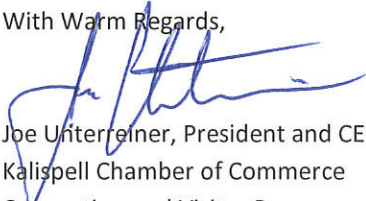 With Warm Regards,
Joe Unterreiner, President and CE
Kalispell Chamber of Commerce